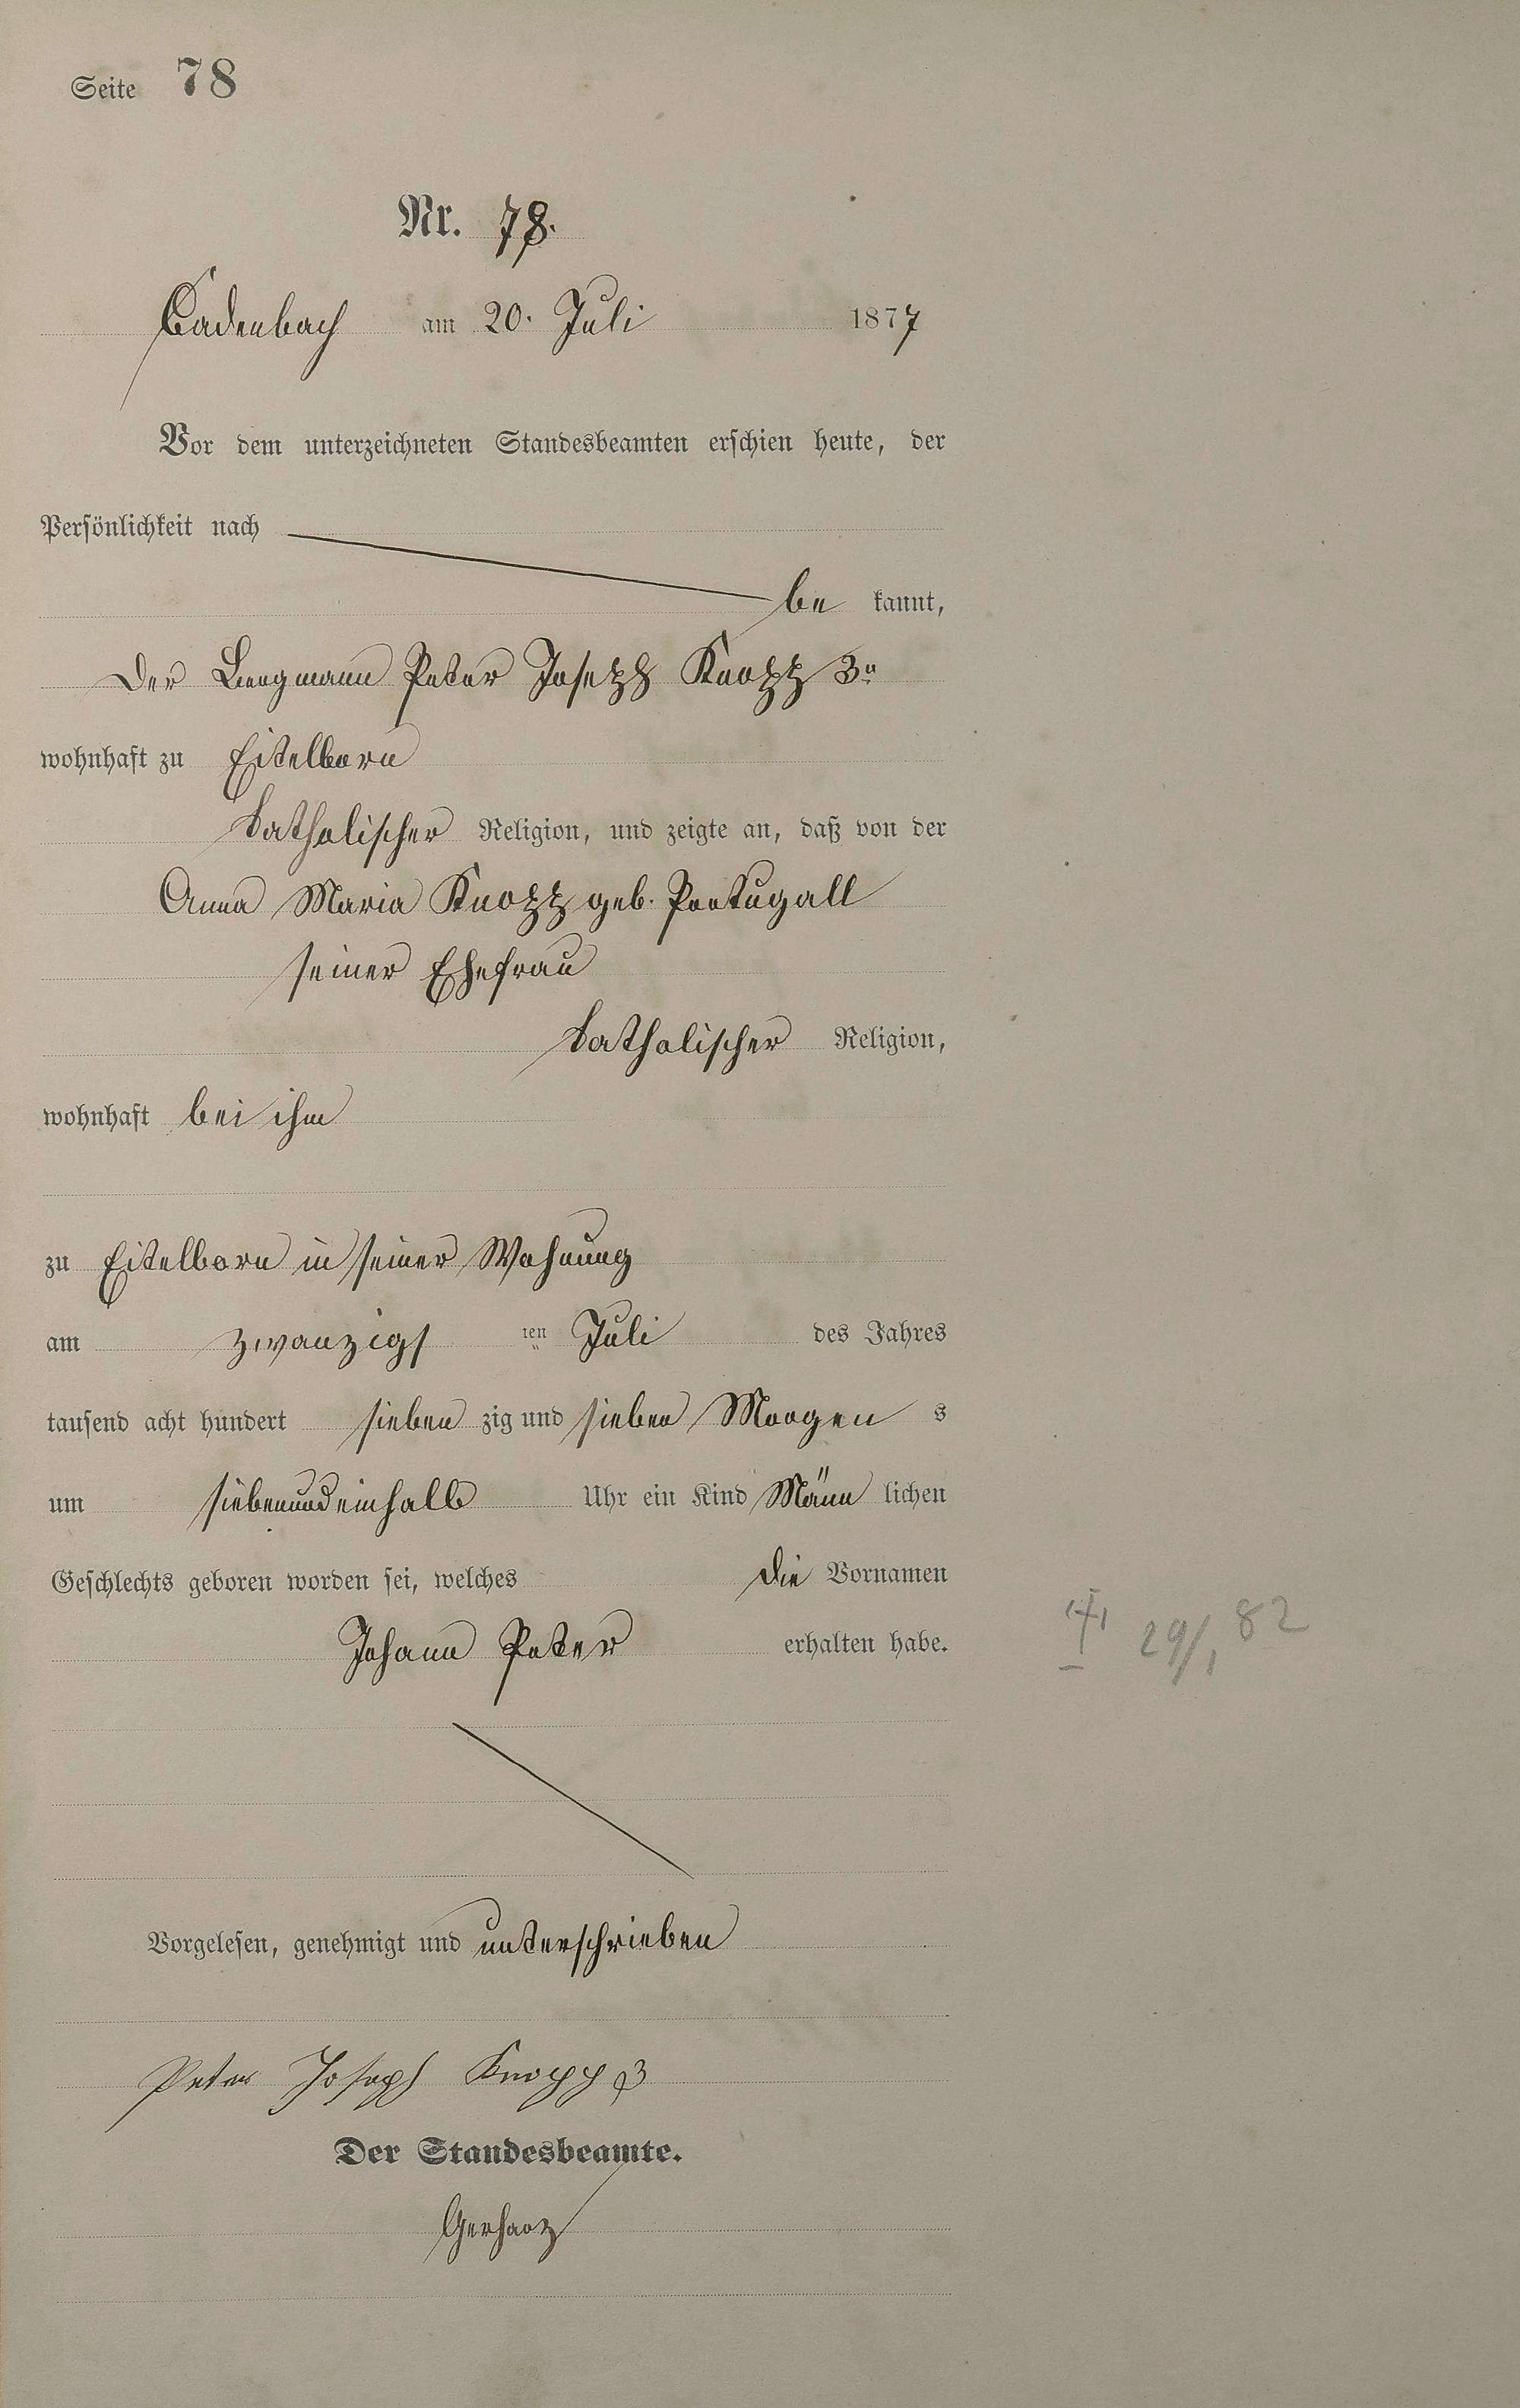 Seite 78
Nr. 78.
Cadenbach am 20. Juli 1877
Vor dem unterzeichneten Standesbeamten erschien heute, der
Persönlichkeit nach
be kannt,
Der Bergmann Peter Joseph Knopp 3r
wohnhaft zu Eitelborn
katholischer Religion, und zeigte an, daß von der
Anna Maria Knopp geb. Portugall
seiner Ehefrau
katholischer Religion,
wohnhaft bei ihm
zu Eitelborn in seiner Wohnung
am zwanzigs ten Juli des Jahres
tausend acht hundert sieben zig und sieben Morgen s
um siebenundeinhalb Uhr ein Kind Männ lichen
Geschlechts geboren worden sei, welches die Vornamen
Johann Peter erhalten habe.
† 29/1 82
Vorgelesen, genehmigt und unterschrieben
Peter Joseph Knopp 3
Der Standesbeamte.
Gerharz